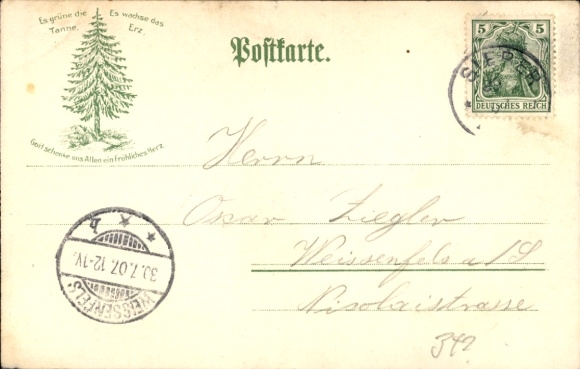 Es grüne die Tanne, Es wachse das Erz.
Gott schenke uns Allen ein fröhliches Herz.
Postkarte.
5 5
DEUTSCHES REICH
Herrn
Oskar Ziegler
Weissenfels a/S
Nicolaistrasse
342
WEISSENFELS
30.7.07.12-1V.
* * b